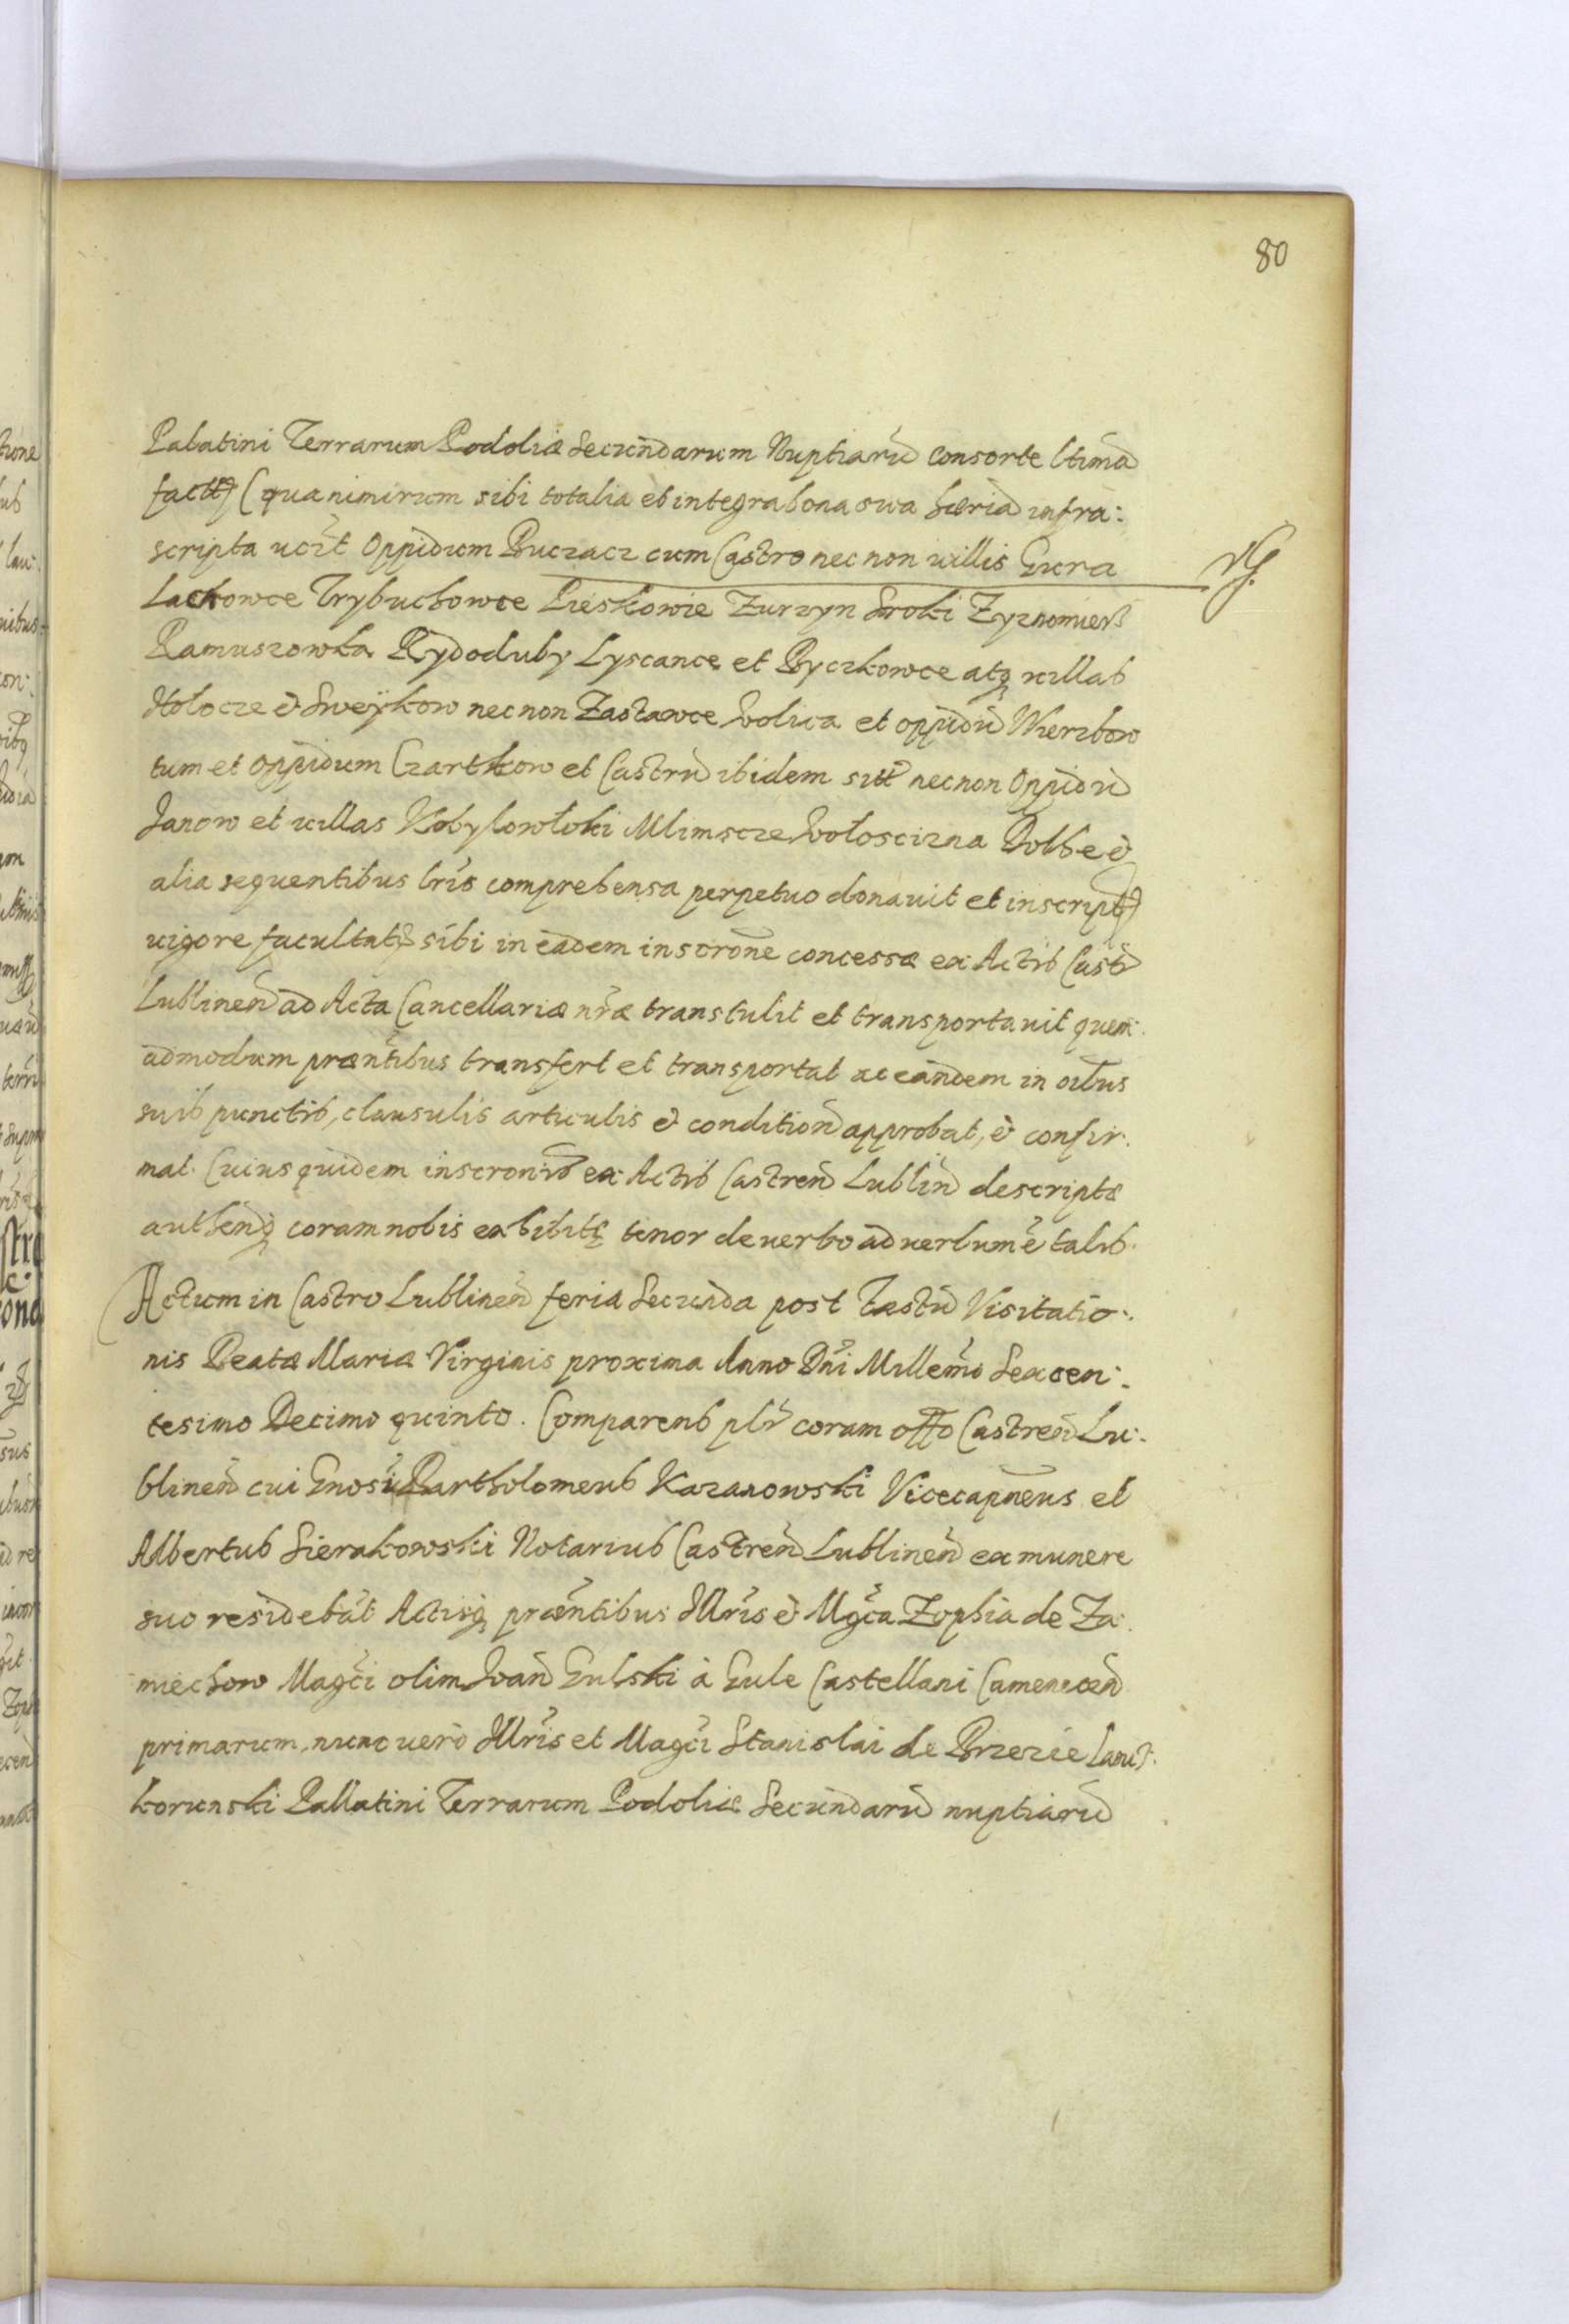 80
Palatini Terrarum Podoliæ Secundarum Nuptiarũ consorte ltima
factẽ (qua nimirum sibi totalia et integra bona sua hæria infra:
scripta ucz̃t Oppidum Buczacz cum Castro nec non willis Gura
Lackowce Trybuchowce Pieskowie Zurzyn Sroki Zyznomiers
Ramuszowka Rydoduby Lyscance et Byczkowce atq villas
Hołocze & Sweykow nec non Zastawce Wolica et oppidũ Wierzbow
tum et Oppidum Czartkow et Castrũ ibidem sitt nec non Oppidũ
Janow et villas Kobyłowłoki Mlimscze Wołoscizna Dolhe &
alia sequentibus lris comprehensa perpetuo donauit et inscript
uigore facultatis sibi in eadem inscrone concessæ ex Actis Castr
Lublinen ad Acta Cancellariæ nræ transtulit et transportauit quem:
admodum præntibus transfert et transportat ac eandem in oĩbus
suis punctis, clausulis articulis & condition approbat, & confir:
mat. Cuius quidem inscronis ex Actis Castren Lublin descriptæ
authenq coram nobis exhibitę tenor de uerbo ad uerbum ẽ talis.
Actum in Castro Lublinen feria Secunda post Festũ Visitatio:
nis Beatæ Mariæ Virginis proxima Anno Dni Millemo Sexcen:
tesimo Decimo quinto. Comparens plr coram offo Castren Lu:
blinen cui Gnosi Bartholomeus Kazanowski Vicecapneus et
Albertus Sierakowski Notarius Castren Lublinen ex munere
suo residebãt Actisq præntibus Illris & Mgca Zophia de Za:
miechow Magci olim Joan Gulski à Gule Castellani Camenecen
primarum, nunc uerò Illris et Magci Stanislai de Brzezie Lanc:
korunski Pallatini Terrarum Podoliæ Secundarũ nuptiarũ